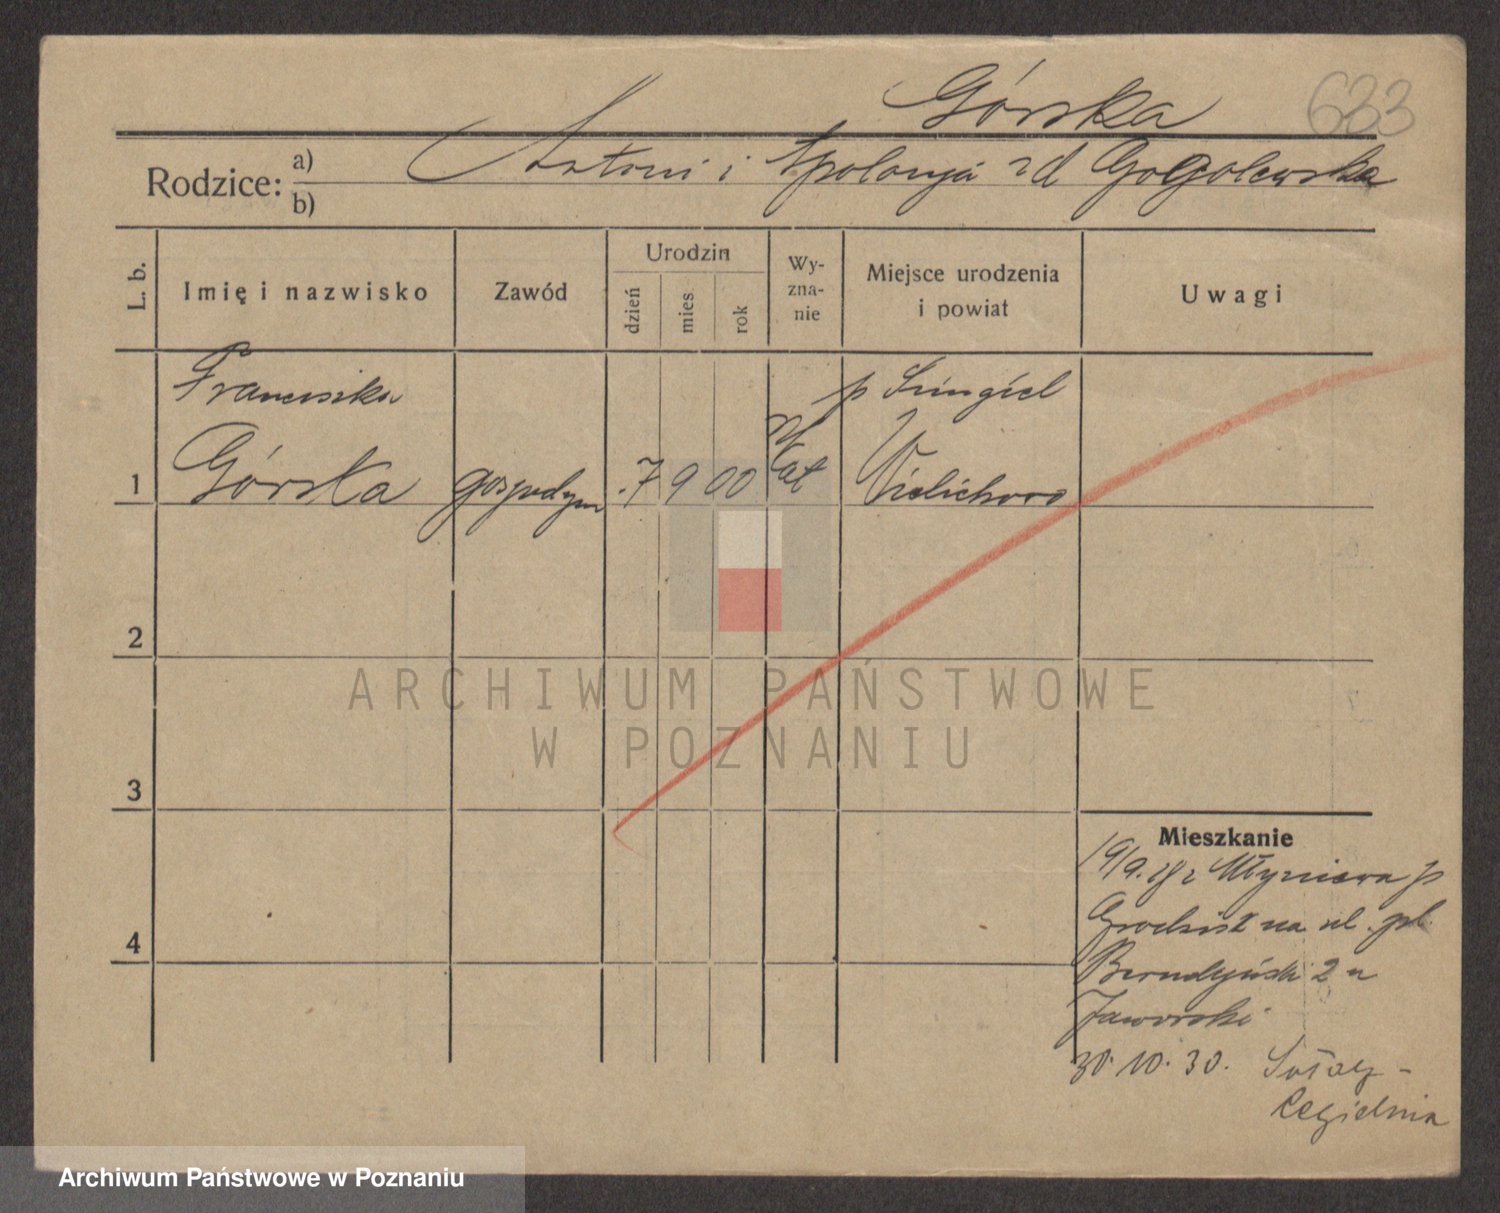 Górska 633
Rodzice: a) Antoni i Apolonja zd Gogolewska
b)
L. b. Imię i nazwisko Zawód Urodzin dzień mies rok Wyznanie Miejsce urodzenia i powiat Uwagi
Franciszka
p Śmigiel
1 Górska gospodyni 7 9 00 Kat Wielichowo
2
3
4
ARCHIWUM PAŃSTWOWE
W POZNANIU
Mieszkanie
19/9.28 z Młyniewa p
Grodzisk na ul. pl.
Bernadyński 2 u
Jaworski
30.10.30. Sołacz -
Cegielnia
Archiwum Państwowe w Poznaniu